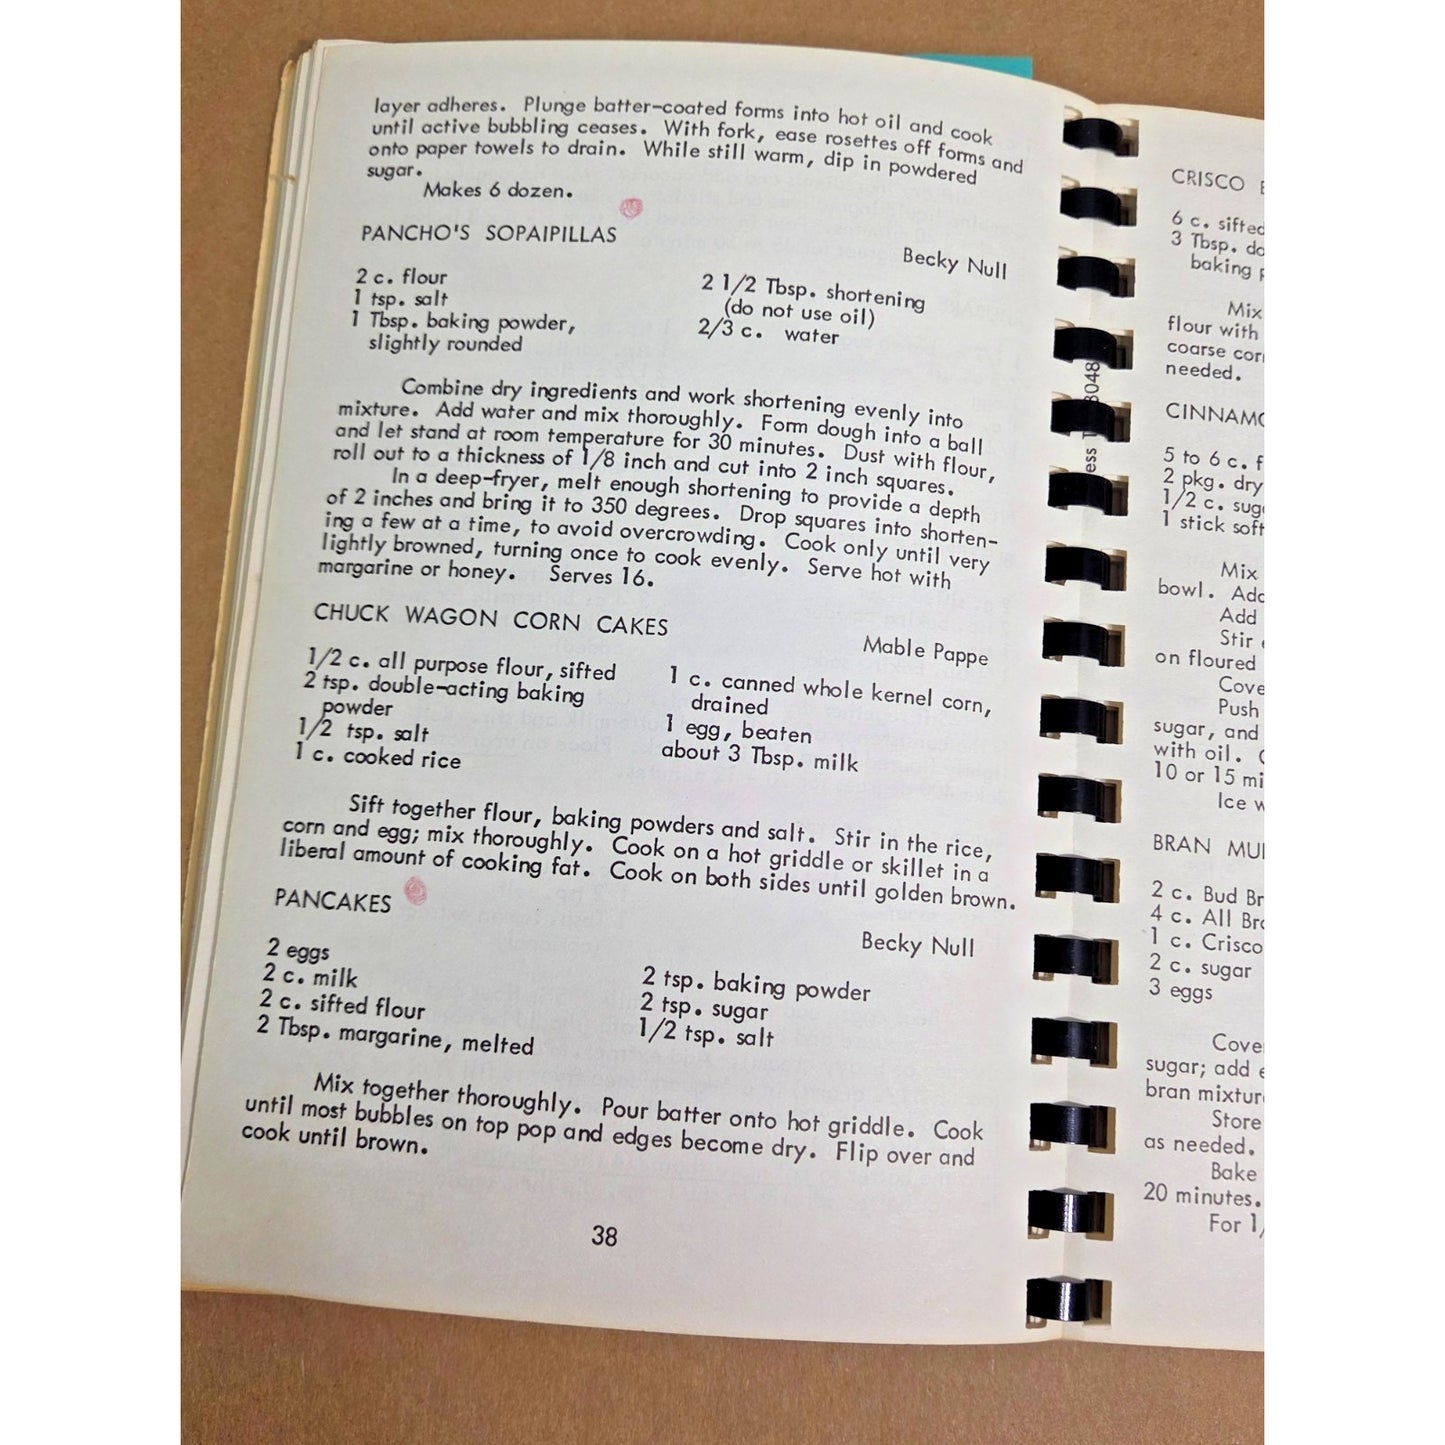 layer adheres. Plunge batter-coated forms into hot oil and cook
until active bubbling ceases. With fork, ease rosettes off forms and
onto paper towels to drain. While still warm, dip in powdered
sugar.
Makes 6 dozen.
PANCHO'S SOPAIPILLAS
Becky Null
2 c. flour
1 tsp. salt
1 Tbsp. baking powder,
slightly rounded
2 1/2 Tbsp. shortening
(do not use oil)
2/3 c. water
Combine dry ingredients and work shortening evenly into
mixture. Add water and mix thoroughly. Form dough into a ball
and let stand at room temperature for 30 minutes. Dust with flour,
roll out to a thickness of 1/8 inch and cut into 2 inch squares.
In a deep-fryer, melt enough shortening to provide a depth
of 2 inches and bring it to 350 degrees. Drop squares into shorten-
ing a few at a time, to avoid overcrowding. Cook only until very
lightly browned, turning once to cook evenly. Serve hot with
margarine or honey. Serves 16.
CHUCK WAGON CORN CAKES
Mable Pappe
1/2 c. all purpose flour, sifted
2 tsp. double-acting baking
powder
1/2 tsp. salt
1 c. cooked rice
1 c. canned whole kernel corn,
drained
1 egg, beaten
about 3 Tbsp. milk
Sift together flour, baking powders and salt. Stir in the rice,
corn and egg; mix thoroughly. Cook on a hot griddle or skillet in a
liberal amount of cooking fat. Cook on both sides until golden brown.
PANCAKES
Becky Null
2 eggs
2 c. milk
2 c. sifted flour
2 Tbsp. margarine, melted
2 tsp. baking powder
2 tsp. sugar
1/2 tsp. salt
Mix together thoroughly. Pour batter onto hot griddle. Cook
until most bubbles on top pop and edges become dry. Flip over and
cook until brown.
38
CRISCO
6 c. sifted
3 Tbsp.
baking
Mix
flour with
coarse
needed.
5 to 6 c.
2 pkg. dry
1/2 c.
1 stick
Mix
bowl.
Add
Stir
on floured
Push
sugar, and
with oil.
10 or 15
Ice
BRAN
2 c. Bud
4 c. All
1 c. Crisco
2 c. sugar
3 eggs
sugar; add
bran
Store
as needed.
Bake
20 minutes.
For